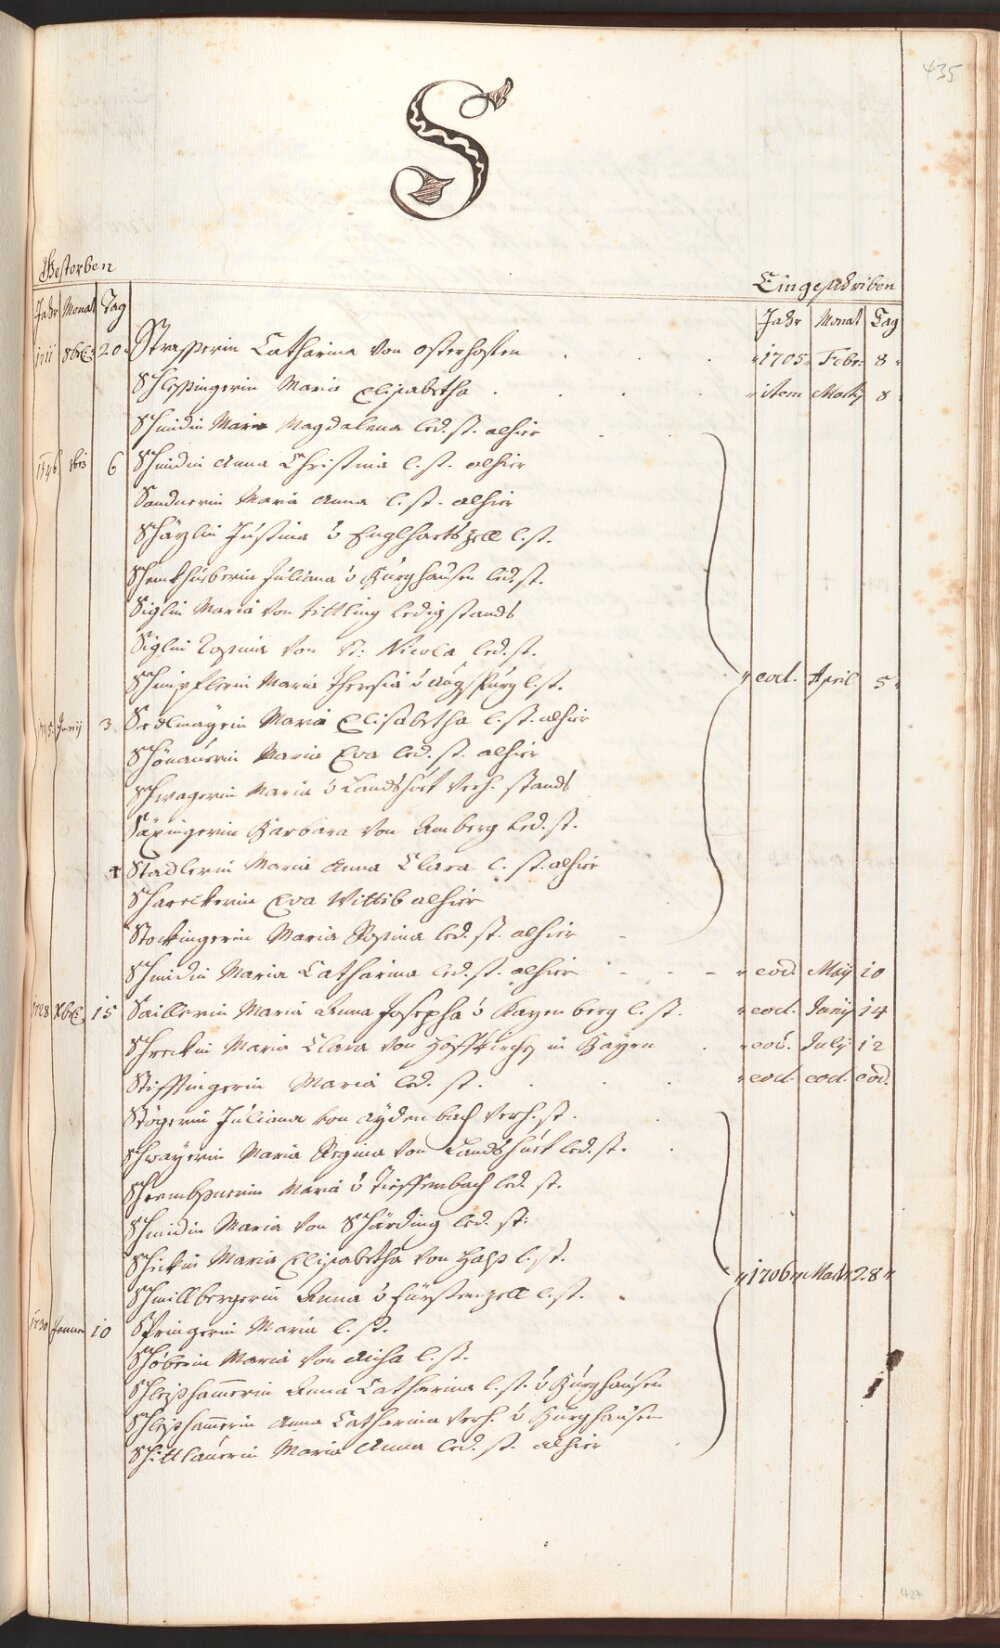 435
S
Gestorben
Eingeschriben
Jahr Monat Tag
Jahr Monat Tag
1711 8bris 20 Strasserin Catharina von Osterhofen 1705 Febr. 8
Schlessingerin Maria Elisabetha item Martij 8
Schmidin Maria Magdalena led. st. alhier
1746 6 Schmidin Anna Christina l. st. alhier
Sandnerin Maria Anna l. st. alhier
Schäzlin Justina v Englhartszell l. st.
Juliana v Burghausen led. st.
Siglin Maria von Tittling ledig stands
Siglin Rosina von St: Nicola led. st.
Schimpflerin Maria Theresia v Augspurg l. st. eod. April 5
Junij 3 Sedlmayrin Maria Elisabetha l. st. alhier
Schönauerin Maria Eva led. st. alhier
Schwagerin Maria v Landshuet verh. stands
Barbara von Amberg led. st.
Stadlerin Maria Anna Clara l. st. alhier
Eva Wittib alhier
Stockingerin Maria Rosina led. st. alhier
Schmidin Maria Catharina led. st. alhier eod. Maij 10
1728 Xbris 15 Saillerin Maria Anna Josepha v l. st. eod. Junij 14
Schreckin Maria Clara von in Bayrn eod. Julij 12
Stiffingerin Maria led. st. eod. eod. eod.
Stögerin Juliana von Aydenbach verh. st.
Schwayerin Maria Regina von Landshuet led. st.
Maria v Tieffenbach led. st.
Schmidin Maria von Schärding led. st:
Schickin Maria Elisabetha von Hals l. st. 1706 Martij 28
Schmillbergerin Anna v Fürstenzell l. st.
1730 Jenner 10 Springerin Maria l. st.
Schöberin Maria von Aicha l. st.
Schleishammerin Anna Catharina l. st. v Burghausen
Schleishammerin Anna Catharina verh. v Burghausen
Schittlauerin Maria Anna led. st. alhier
437